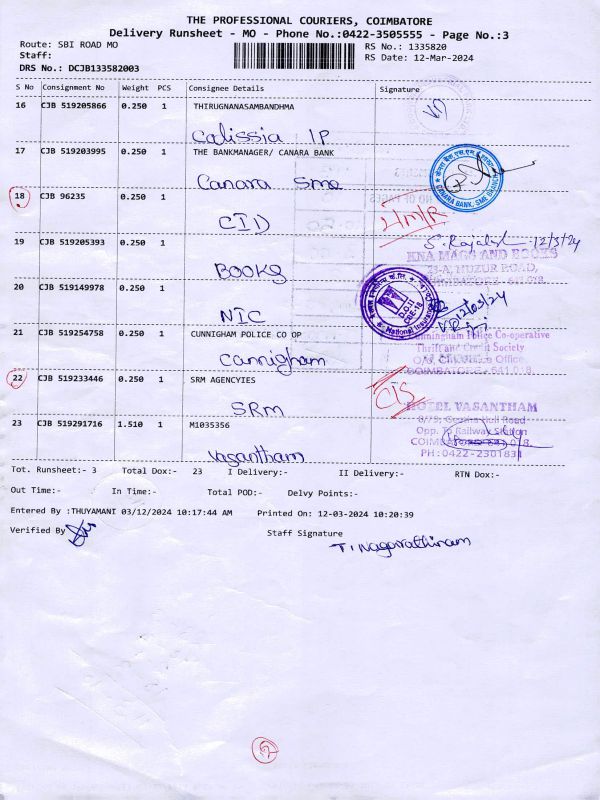 THE PROFESSIONAL COURIERS, COIMBATORE
Delivery Runsheet - MO - Phone No.:0422-3505555 - Page No.:3
Route: SBI ROAD MO
RS No.: 1335820
Staff:
RS Date: 12-Mar-2024
DRS No.: DCJB133582003
S No Consignment No Weight PCS Consignee Details Signature
16 CJB 519205866 0.250 1 THIRUGNANASAMBANDHMA
Calissia IP
17 CJB 519203995 0.250 1 THE BANKMANAGER/ CANARA BANK
Canara Sme
CANARA BANK, SME BRANCH
18 CJB 96235 0.250 1
CID
19 CJB 519205393 0.250 1
S. Rajalesh 12/3/24
KNA MAGS AND BOOKS
HUZUR ROAD,
Books
20 CJB 519149978 0.250 1
NIC
National Insurance
D.O.II
CBE-18
12/03/24
21 CJB 519254758 0.250 1 CUNNIGHAM POLICE CO OP
Cannigham
Cunningham Police Co-operative
Thrift and Credit Society
Office
COIMBATORE - 641 018.
22 CJB 519233446 0.250 1 SRM AGENCYIES
SRM
CIS
23 CJB 519291716 1.510 1 M1035356
Vasantham
HOTEL VASANTHAM
Opp. To Railway Station
COIMBATORE - 641 018.
PH:0422-2301831
Tot. Runsheet:- 3 Total Dox:- 23 I Delivery:- II Delivery:- RTN Dox:-
Out Time:- In Time:- Total POD:- Delvy Points:-
Entered By :THUYAMANI 03/12/2024 10:17:44 AM Printed On: 12-03-2024 10:20:39
Verified By Staff Signature
T. Nagarathinam